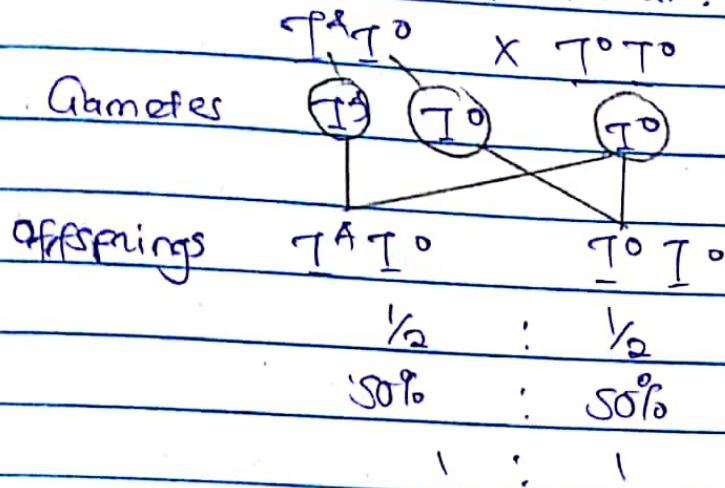 I^A I^O × I^O I^O
Gametes I^A I^O I^O
Offsprings I^A I^O I^O I^O
1/2 : 1/2
50% : 50%
1 : 1